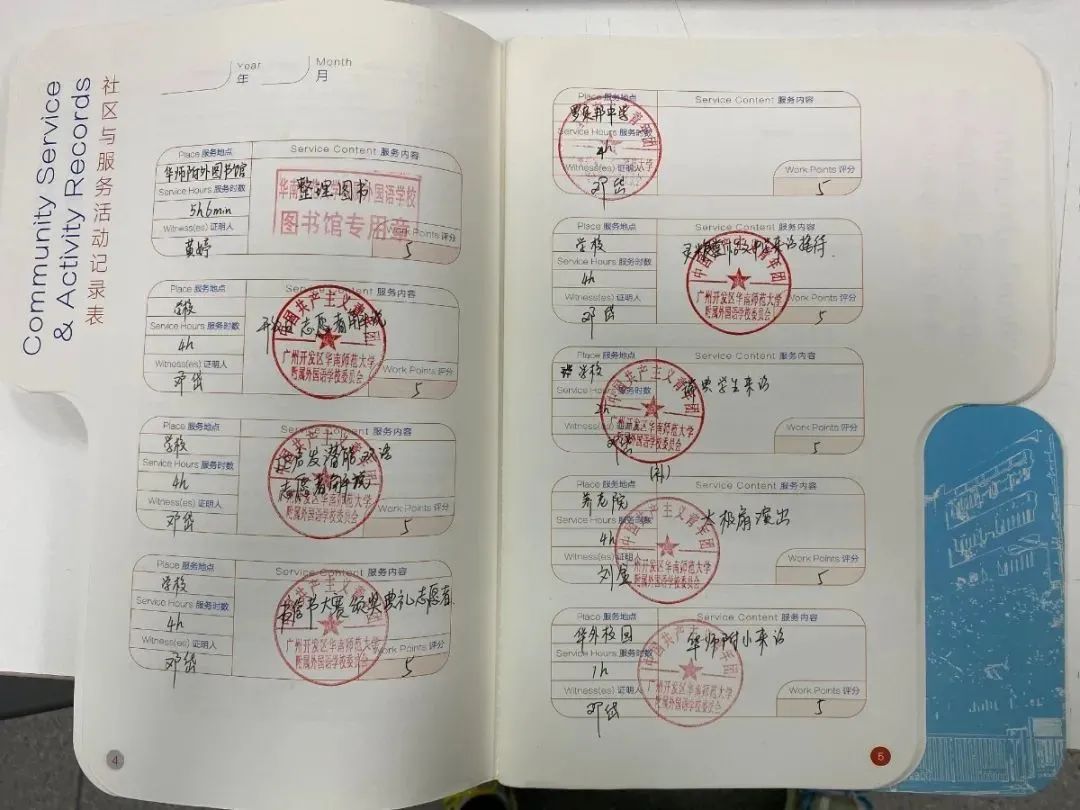 Community Service
& Activity Records
社区与服务活动记录表
Year
年
Month
月
Place 服务地点
华师附外图书馆
Service Hours 服务时数
5h6min
Witness(es) 证明人
黄婷
Service Content 服务内容
整理图书
图书馆专用章
Work Points 评分
5
Place 服务地点
学校
Service Hours 服务时数
4h
Witness(es) 证明人
邓岱
Service Content 服务内容
志愿者
中国共产主义青年团
广州开发区华南师范大学
附属外国语学校委员会
Work Points 评分
5
Place 服务地点
学校
Service Hours 服务时数
4h
Witness(es) 证明人
邓岱
Service Content 服务内容
启发潜能
志愿者
附属外国语学校委员会
Work Points 评分
5
Place 服务地点
学校
Service Hours 服务时数
4h
Witness(es) 证明人
邓岱
Service Content 服务内容
书大赛颁奖典礼志愿者
广州开发区华南师范大学
附属外国语学校委员会
Work Points 评分
5
4
Place 服务地点
罗定邦中学
Service Hours 服务时数
4h
Witness(es) 证明人
邓岱
Service Content 服务内容
Work Points 评分
5
Place 服务地点
学校
Service Hours 服务时数
4h
Witness(es) 证明人
邓岱
Service Content 服务内容
来访接待
中国共产主义青年团
广州开发区华南师范大学
附属外国语学校委员会
Work Points 评分
5
Place 服务地点
学校
Service Hours 服务时数
Witness(es) 证明人
Service Content 服务内容
学生来访
附属外国语学校委员会
Work Points 评分
5
Place 服务地点
养老院
Service Hours 服务时数
4h
Witness(es) 证明人
Service Content 服务内容
太极扇演出
附属外国语学校委员会
Work Points 评分
5
Place 服务地点
华外校园
Service Hours 服务时数
1h
Witness(es) 证明人
邓岱
Service Content 服务内容
华师附小来访
广州开发区华南师范大学
附属外国语学校委员会
Work Points 评分
5
5